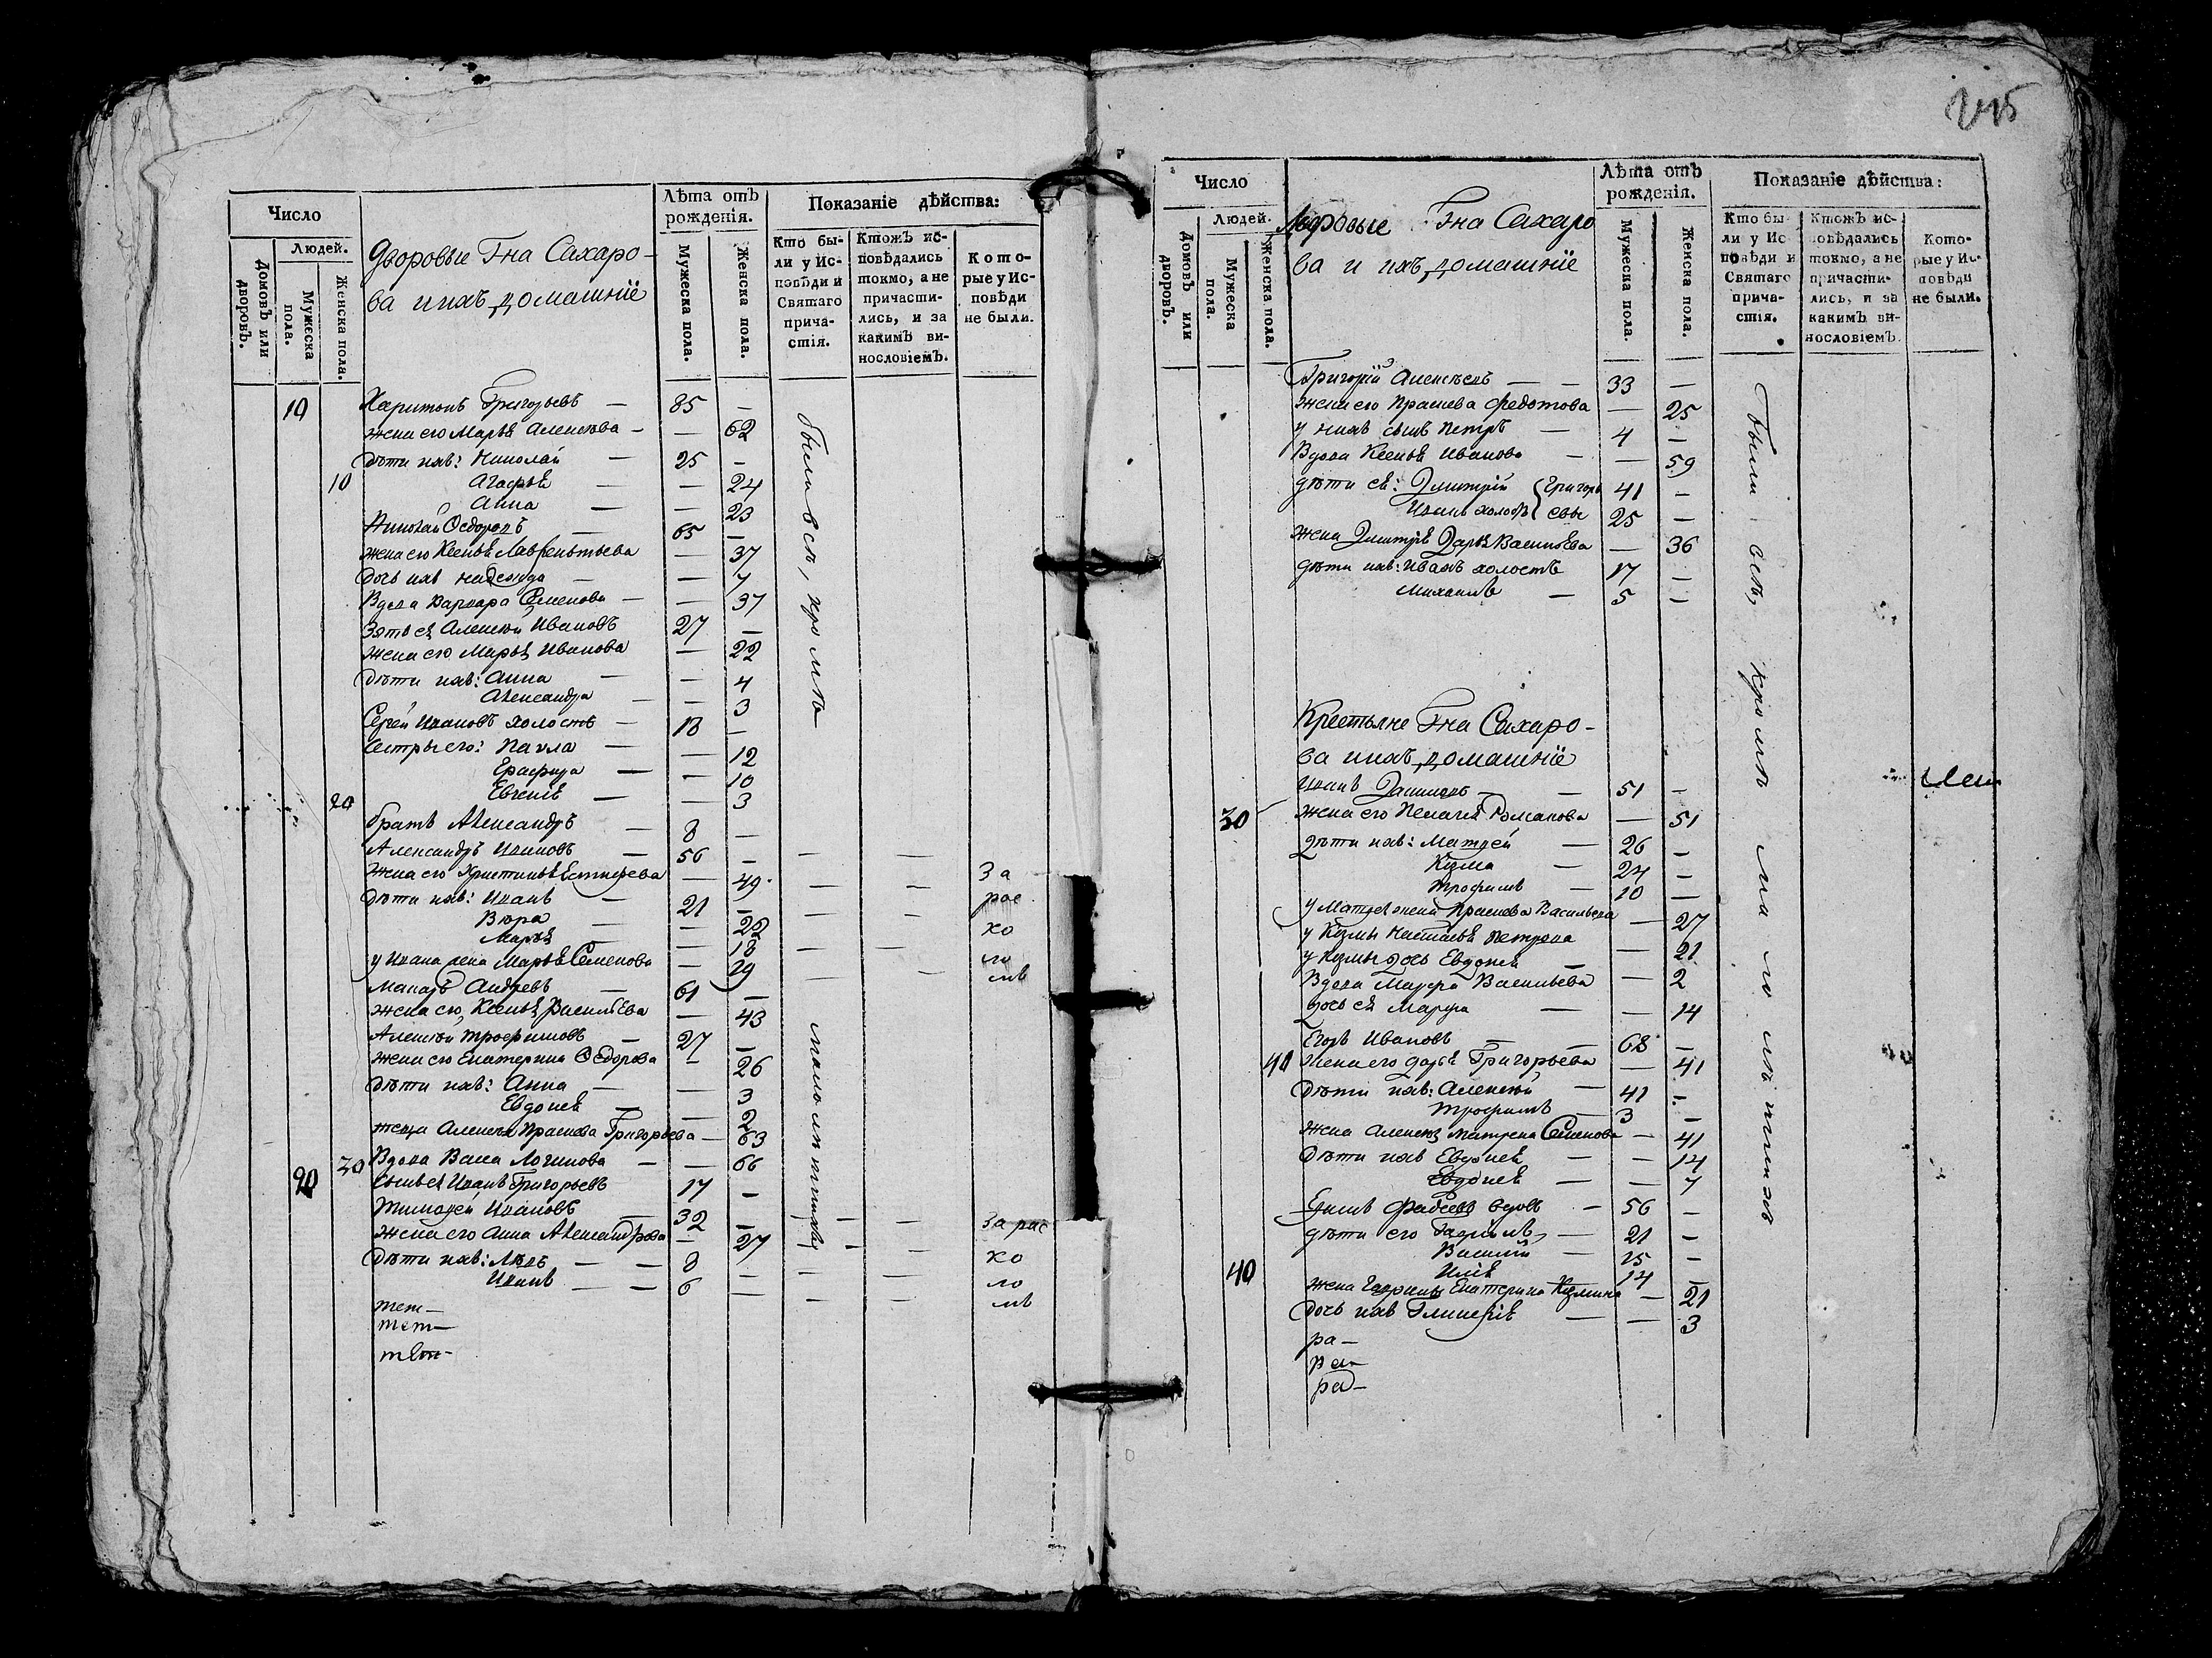 Число
Людей.
Домовъ или дворовъ.
Мужеска пола.
Женска пола.
Дворовые Гна Сахаро-
ва и ихъ домашніе
Лѣта отъ рожденія.
Мужеска пола.
Женска пола.
Показаніе дѣйства:
Кто бы-
ли у Ис-
повѣди и
Святаго
прича-
стія.
Ктожъ ис-
повѣдались
токмо, а не
причасти-
лись, и за
какимъ ви-
нословіемъ.
Кото-
рые у Ис-
повѣди
не были.
10 Харитонъ Григорьевъ — 85 —
жена его Марья Алексѣева — — 62
дѣти ихъ: Николай — 25 —
10 Агафья — — 24
Анна — — 23
Николай Ѳедоровъ — 65 —
жена его Ксенья Лаврентьева — 37
дочь ихъ Надежда — — 7
Вдова Варвара Семенова — — 37
Зять ея Алексѣй Ивановъ 27 —
жена его Марья Иванова — 22
дѣти ихъ: Анна — — 4
Александра — — 3
Сергѣй Ивановъ холостъ — 18 —
Сестры его: Павла — — 12
— — 10
20 Евгенія — — 3
братъ Александръ — 8 —
Александръ Ивановъ — 56 — — —
жена его Христинья — 49 — — За
дѣти ихъ: Иванъ — 21 — — — рас
Вѣра — — 22 ко
Марья — — 18 — — ло
у Ивана жена Марья Семенова — 19 — — мъ
Макаръ Андреевъ — 61 —
жена его Ксенья Васильева — 43
Алексѣй Трофимовъ — 27 —
жена его Екатерина Ѳедорова — 26
дѣти ихъ: Анна — — 3
Евдокея — — 2
жена Алексѣя Прасковья Григорьева — 63
30 Вдова Васса Логинова — — 66
20 Сынъ ея Иванъ Григорьевъ 17 —
Тимофей Ивановъ — 32 — — — За рас
жена его Анна Александрова — 27 — —
дѣти ихъ: Левъ — — 8 — — — ко
Иванъ — — 6 — — — ло
мъ
тет—
тет—
тет—
были всѣ, кромѣ
малолѣтнихъ
Число
Людей.
Домовъ или дворовъ.
Мужеска пола.
Женска пола.
Дворовые Гна Сахаро
ва и ихъ домашніе
Лѣта отъ рожденія.
Мужеска пола.
Женска пола.
Показаніе дѣйства:
Кто бы-
ли у Ис-
повѣди и
Святаго
прича-
стія.
Ктожъ ис-
повѣдались
токмо, а не
причасти-
лись, и за
какимъ ви-
нословіемъ.
Кото-
рые у Ис-
повѣди
не были.
Григорій Алексѣевъ — — 33 —
жена его Прасковья Федотова — 25
у нихъ сынъ Петръ — 4 —
Вдова Ксенья Иванова — — 59
дѣти ея: Дмитрій Григорь 41 —
Иванъ холостъ евы 25 —
жена Дмитрія Дарья Васильева — 36
дѣти ихъ: Иванъ холостъ 17 —
Михаилъ — 5 —
Крестьяне Гна Сахаро-
ва и ихъ домашніе
Иванъ Даниловъ — — 51 —
30 жена его Пелагея Романова — 51
дѣти ихъ: Матвей — 26 —
Кузма — 24 —
Трофимъ — 10 —
у Матвея жена Прасковья Васильева — 27
у Кузмы Настасья Петрова — 21
у Кузмы дочь Евдокея — — 2
Вдова Марфа Васильева —
дочь ея Марфа — — 14
Егоръ Ивановъ — — 68 —
40 жена его Дарья Григорьева — 41
дѣти ихъ: Алексѣй — 41 —
Трофимъ — 3 —
жена Алексѣя Матрена Семенова — 41
дѣти ихъ Евдокея — — 14
Евдокея — — 7
Фадеевъ вдовъ — 56 —
дѣти его Гаврилъ — 21 —
Василій — 15 —
40 Илья 14 —
жена Гаврилы Екатерина Кузмина — 21
дочь ихъ Гликерія — — 3
ра—
ра—
ра—
Были всѣ, кромѣ малолѣтнихъ